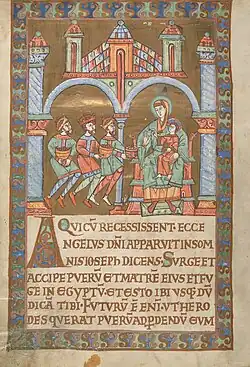 AQUICŪ RECESSISSENT. ECCE
ANGELVS DN̄I APPARVIT INSOM
NIS IOSEPH DICENS. SURGE ET
ACCIPE PVERŪ ET MATRĒ EIVS ET FV
GE IN EGYPTV̄. ET ESTO IBI VSQ DŪ
DICĀ TIBI. FUTURŪ Ē ENĪ. VT HERO
DES QUERAT PVERV̄ AD PDENDV̄ EVM